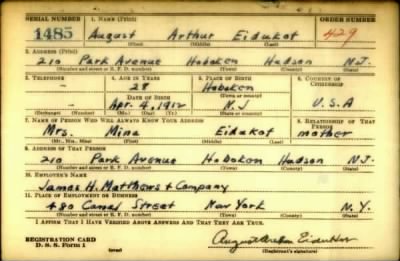 SERIAL NUMBER 1. NAME (Print) ORDER NUMBER
1485 August Arthur Eidukot 429
(First) (Middle) (Last)
2. ADDRESS (Print)
210 Park Avenue Hoboken Hudson N.J.
(Number and street or R. F. D. number) (Town) (County) (State)
3. TELEPHONE 4. AGE IN YEARS 5. PLACE OF BIRTH 6. COUNTRY OF CITIZENSHIP
28 Hoboken
DATE OF BIRTH (Town or county)
Apr. 4, 1912 N.J U.S.A
(Exchange) (Number) (Mo.) (Day) (Yr.) (State or country)
7. NAME OF PERSON WHO WILL ALWAYS KNOW YOUR ADDRESS 8. RELATIONSHIP OF THAT PERSON
Mrs. Mina Eidukot mother
(Mr., Mrs., Miss) (First) (Middle) (Last)
9. ADDRESS OF THAT PERSON
210 Park Avenue Hoboken Hudson N.J.
(Number and street or R. F. D. number) (Town) (County) (State)
10. EMPLOYER'S NAME
James H. Matthews & Company
11. PLACE OF EMPLOYMENT OR BUSINESS
480 Canal Street New York N.Y.
(Number and street or R. F. D. number) (Town) (County) (State)
I AFFIRM THAT I HAVE VERIFIED ABOVE ANSWERS AND THAT THEY ARE TRUE.
REGISTRATION CARD
D. S. S. Form 1 (over) (Registrant's signature)